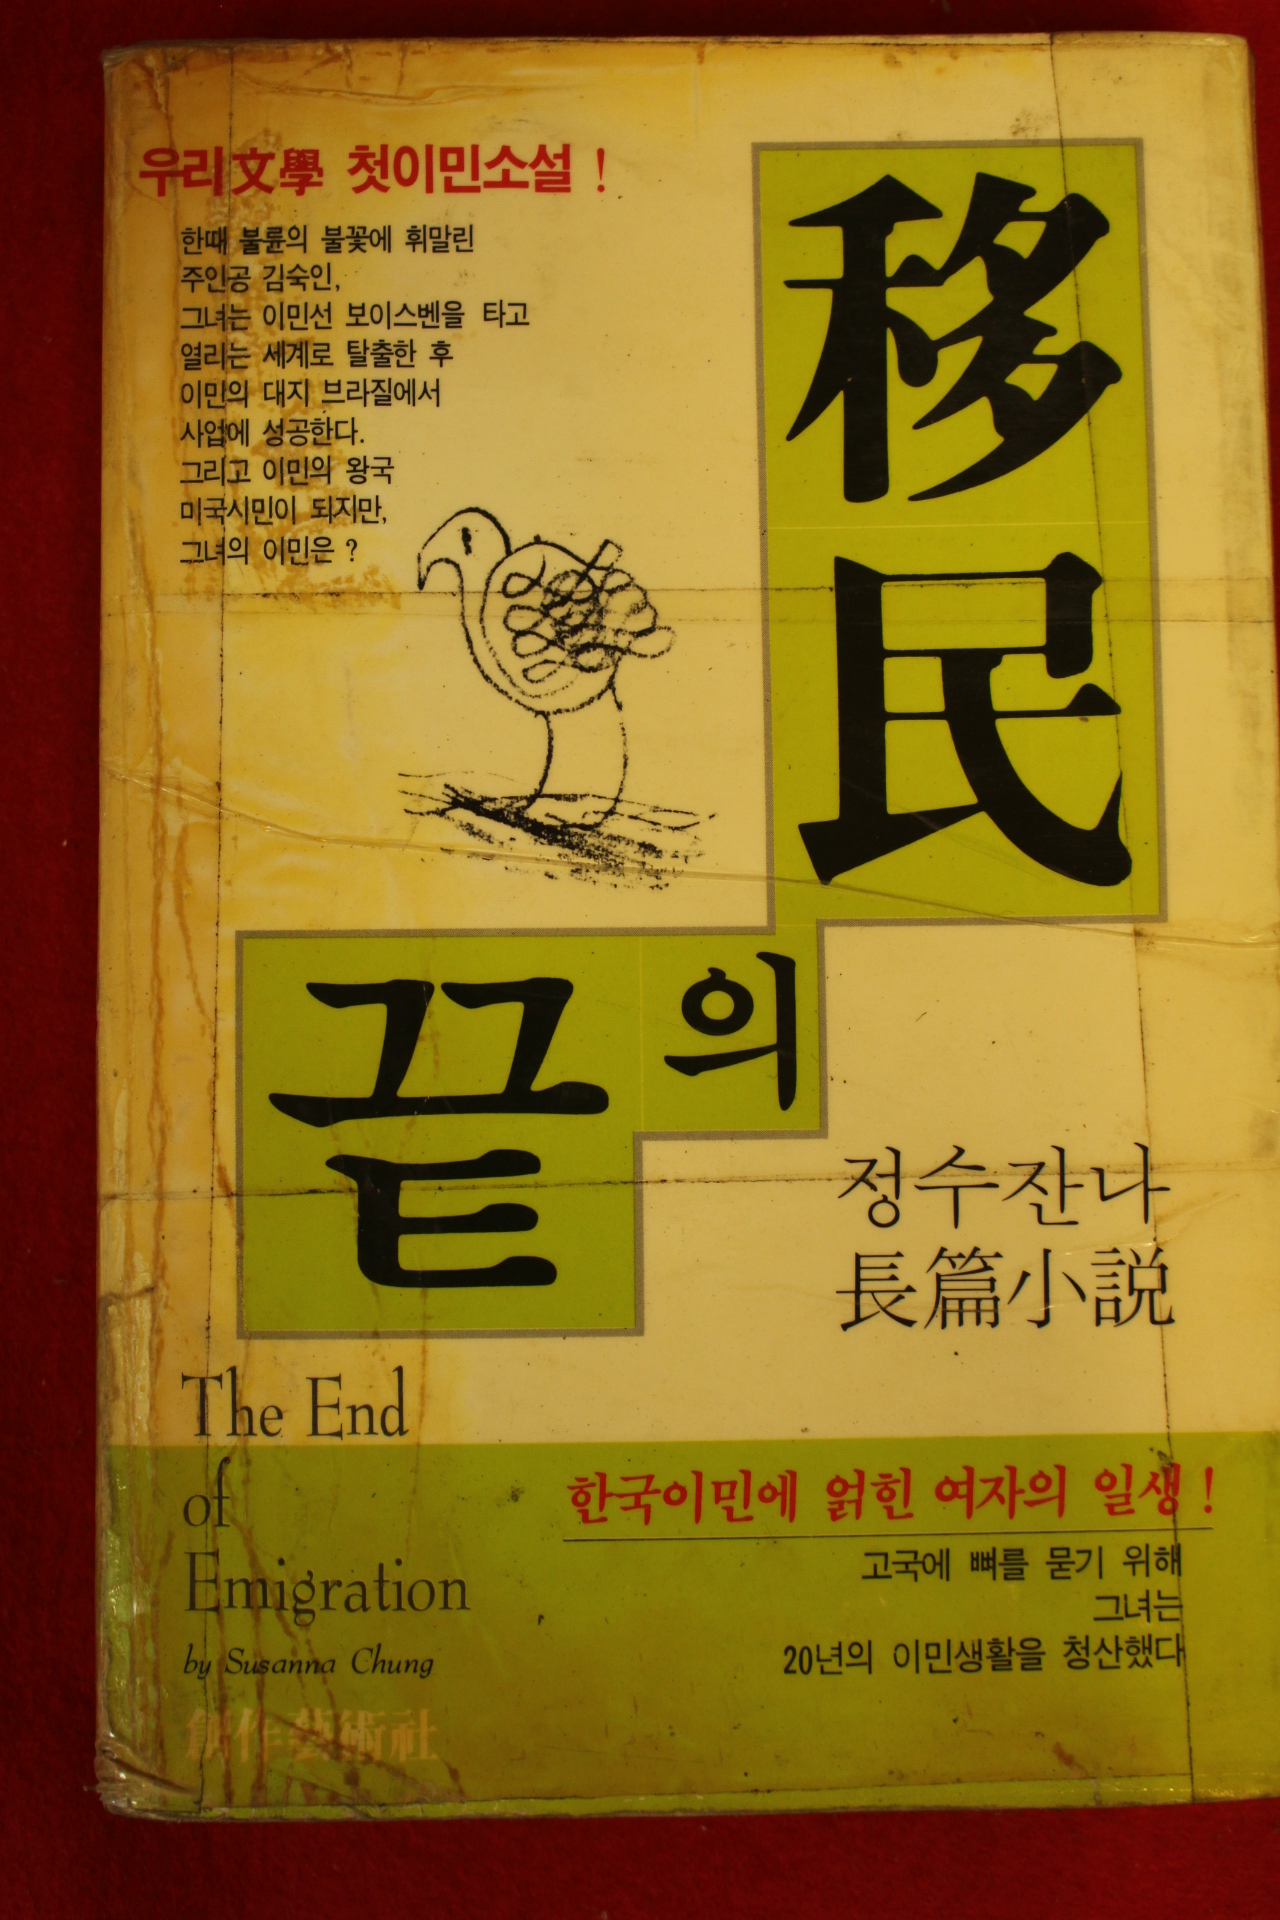 우리文學 첫이민소설 !
한때 불륜의 불꽃에 휘말린
주인공 김숙인,
그녀는 이민선 보이스벤을 타고
열리는 세계로 탈출한 후
이민의 대지 브라질에서
사업에 성공한다.
그리고 이민의 왕국
미국시민이 되지만,
그녀의 이민은 ?
移民
의
끝
정수잔나
長篇小説
The End
of
Emigration
by Susanna Chung
創作藝術社
한국이민에 얽힌 여자의 일생 !
고국에 뼈를 묻기 위해
그녀는
20년의 이민생활을 청산했다